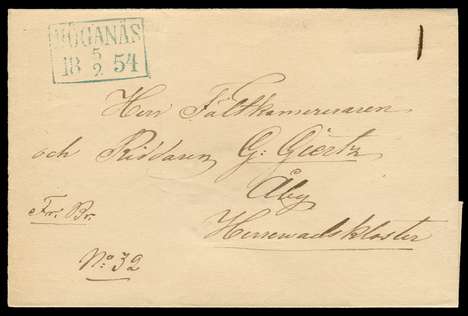 HÖGANÄS
18 5/2 54
Herr Fältkamereraren
och Riddaren G: Giertz
Åby
Herrevadskloster
Fr: Br.
No: 32